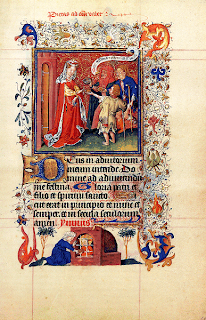 Deus in adiutorium
meum intende. Do
mine ad adiuvandum
me festina. Gloria patri et
filio et spiritui sancto. Si
cut erat in principio et nunc et
semper, et in secula seculorum
amen. Ymnus